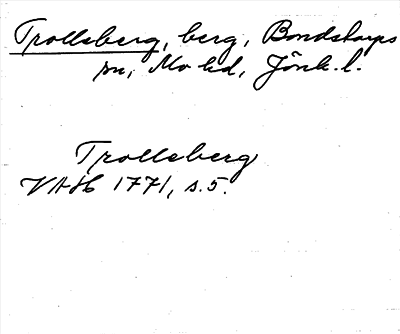 Trollsberg, berg, Bondstorps
sn, Mo hd, Jönk. l.
Trollsberg
VAH 1771, s. 5.